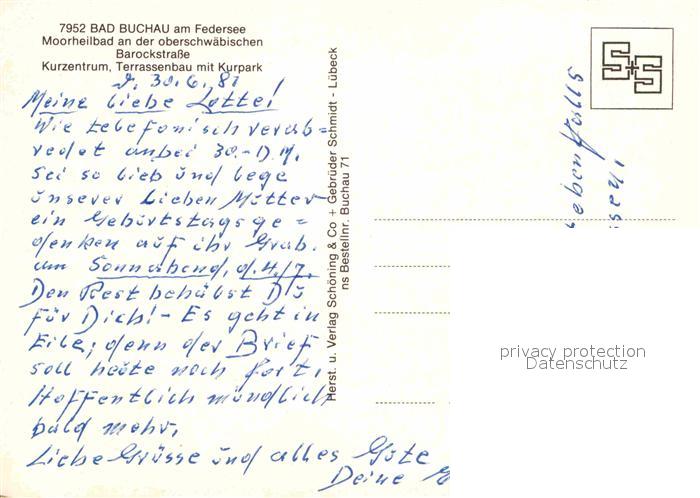 7952 BAD BUCHAU am Federsee
Moorheilbad an der oberschwäbischen
Barockstraße
Kurzentrum, Terrassenbau mit Kurpark
d. 30.6.81
Meine liebe Lotte!
Wie telefonisch verab=
redet anbei 30.- D.M.
Sei so lieb und lege
unserer lieben Mutter
ein Geburtstagsge=
denken auf ihr Grab.
am Sonnabend, d. 4./7.
Den Rest behälst Du
für Dich! - Es geht in
Eile; denn der Brief
soll heute noch fort.
Hoffentlich mündlich
bald mehr.
Liebe Grüsse und alles Gute
Deine
Herst. u. Verlag Schöning & Co + Gebrüder Schmidt - Lübeck
ns Bestellnr. Buchau 71
S+S
ebenfalls
sen,
privacy protection
Datenschutz